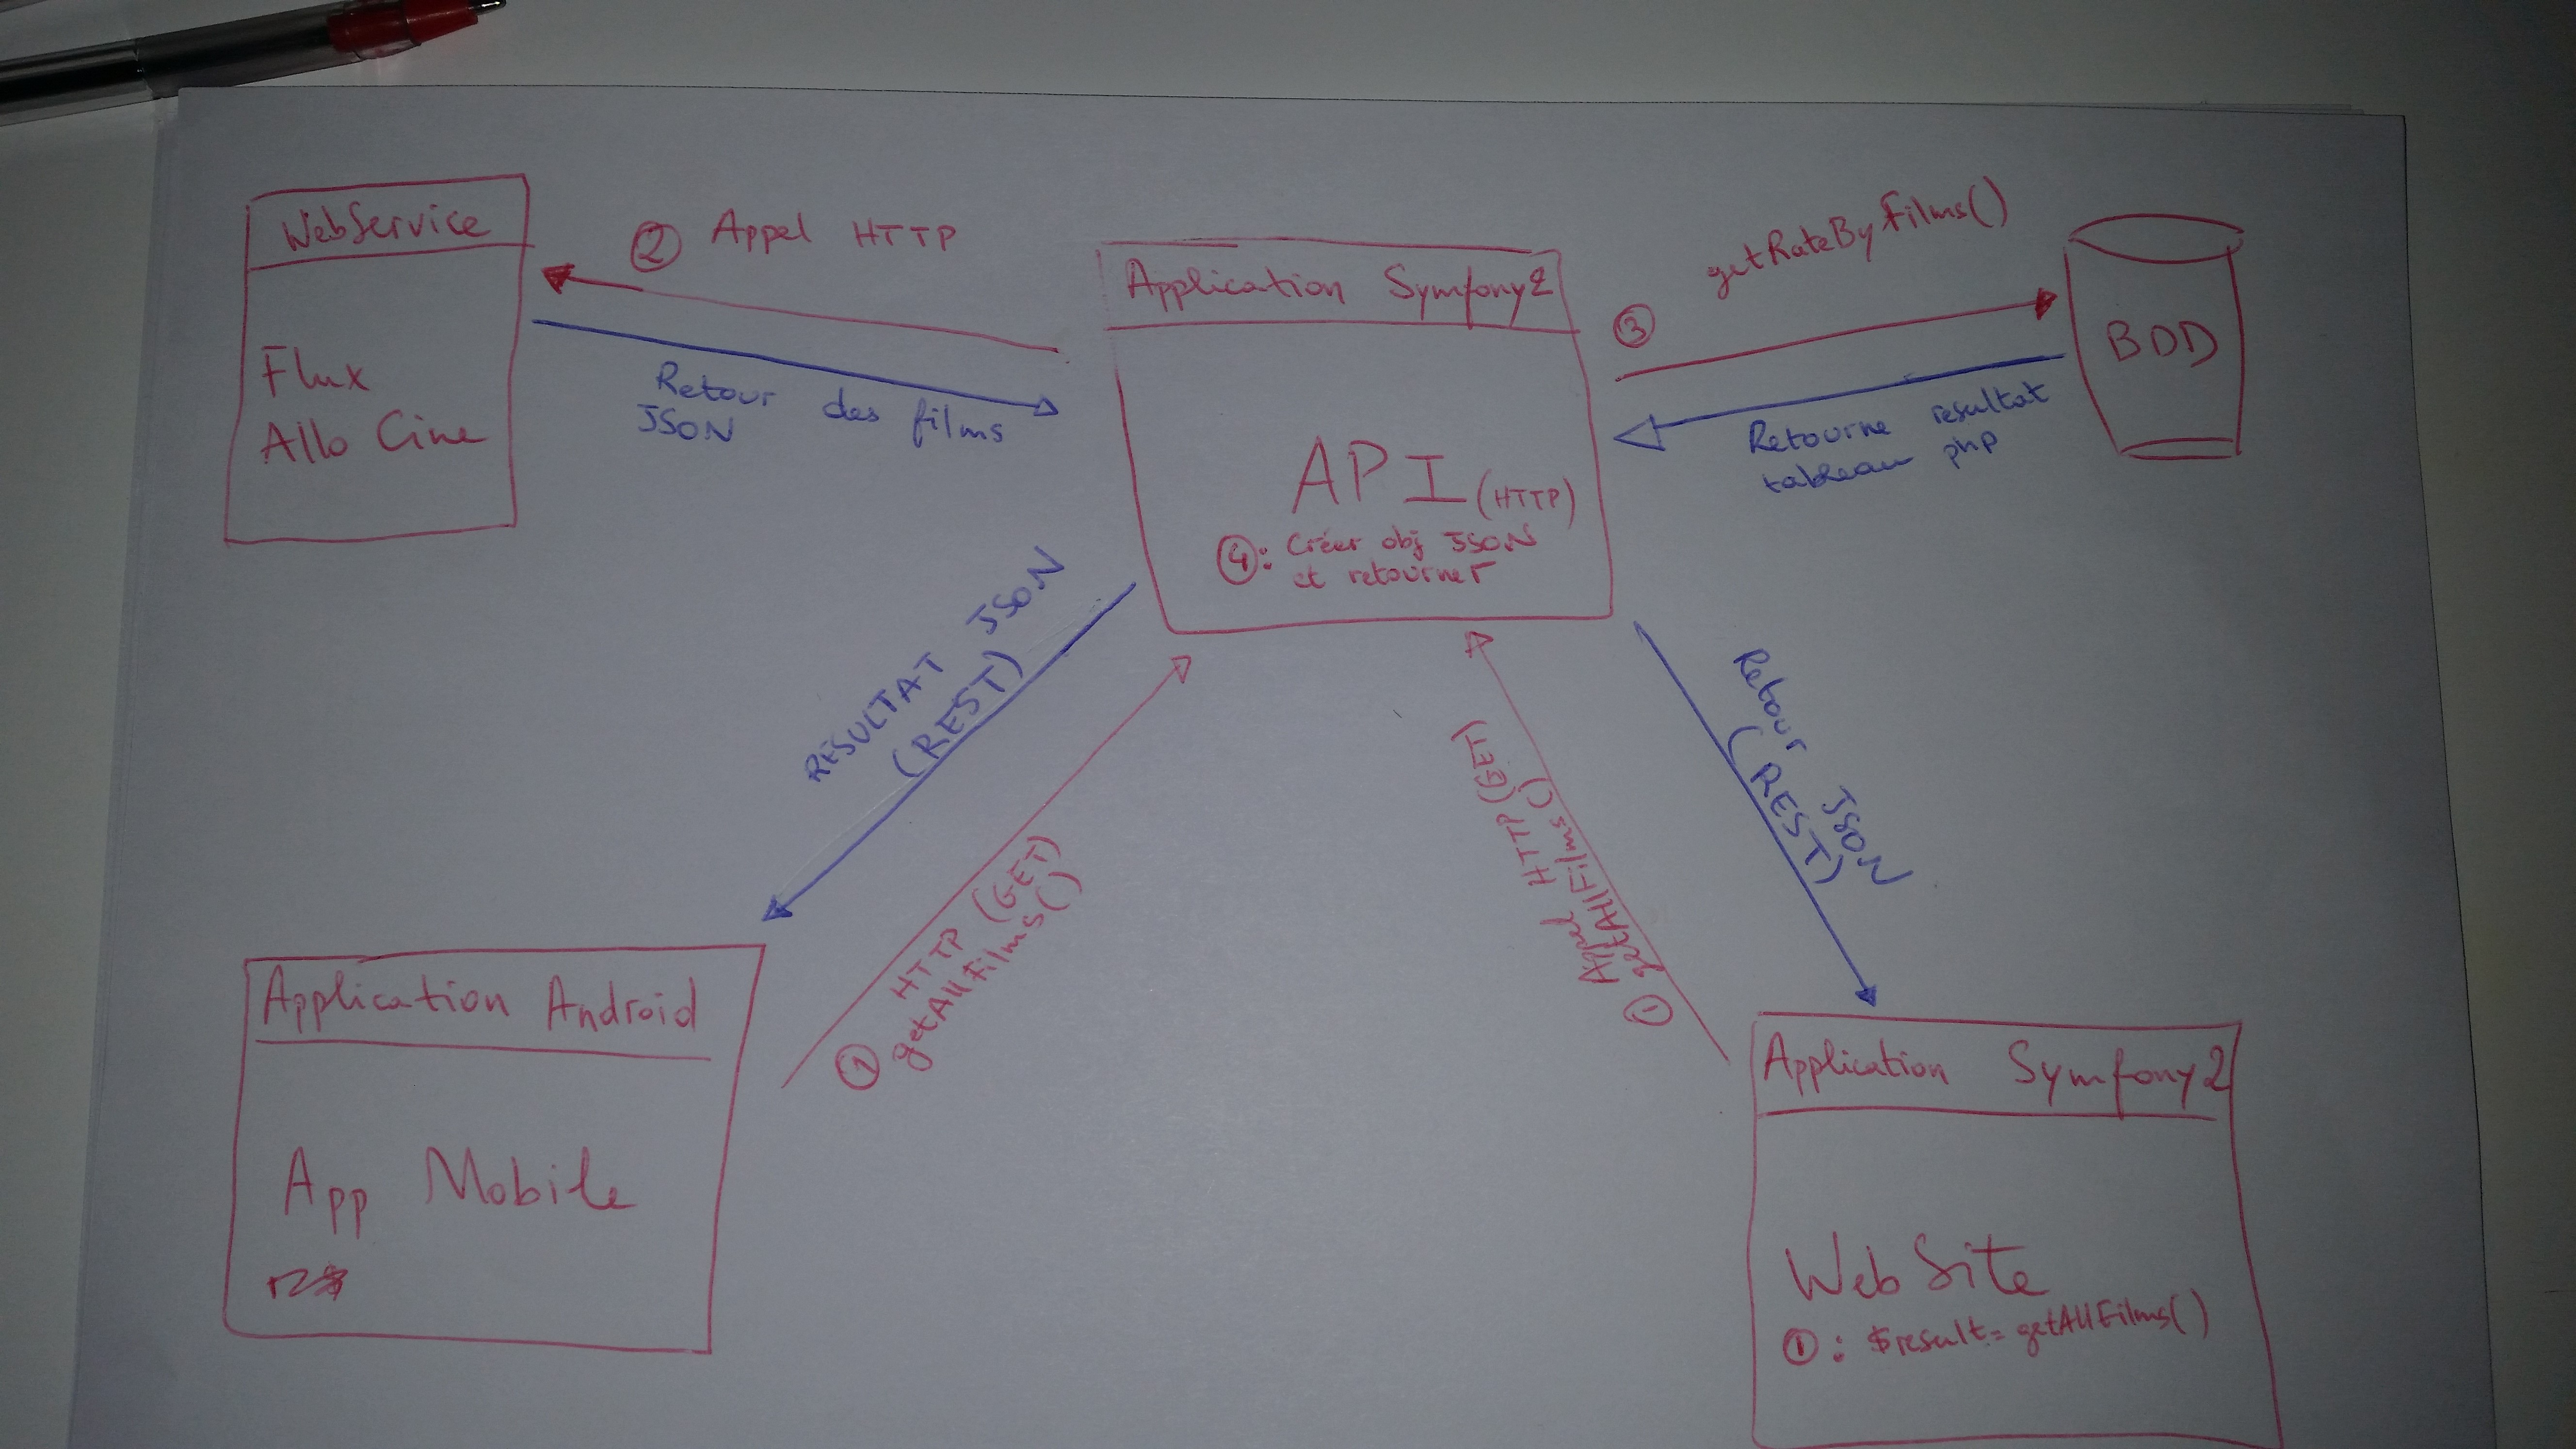 WebService
Flux
Allo Cine
② Appel HTTP
Retour des films
JSON
Application Symfony2
API (HTTP)
④: Créer obj JSON
et retourner
③ getRateByFilms()
BDD
Retourne resultat
tableau php
RESULTAT JSON
(REST)
HTTP (GET)
① getAllFilms()
Appel HTTP (GET)
① getAllFilms()
Retour JSON
(REST)
Application Android
App Mobile
Application Symfony2
Web Site
①: $result= getAllFilms()